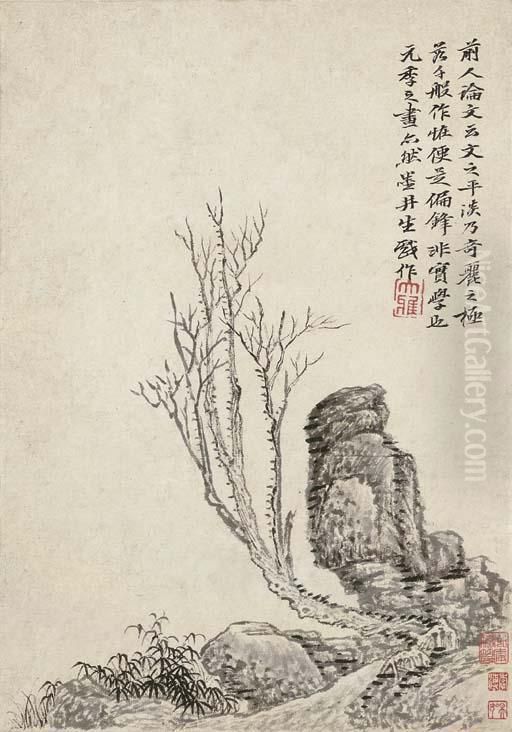 前人論文云文之平淡乃奇麗之極
若千般作怪便是偏鋒非實學也
元季之畫亦然墨井生戲作
大雅
NiceArtGallery.com